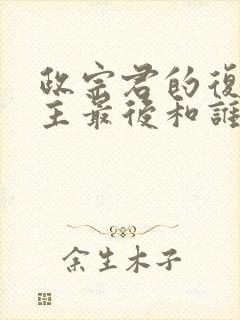 政宗君的復
王最後和誰
余生木子